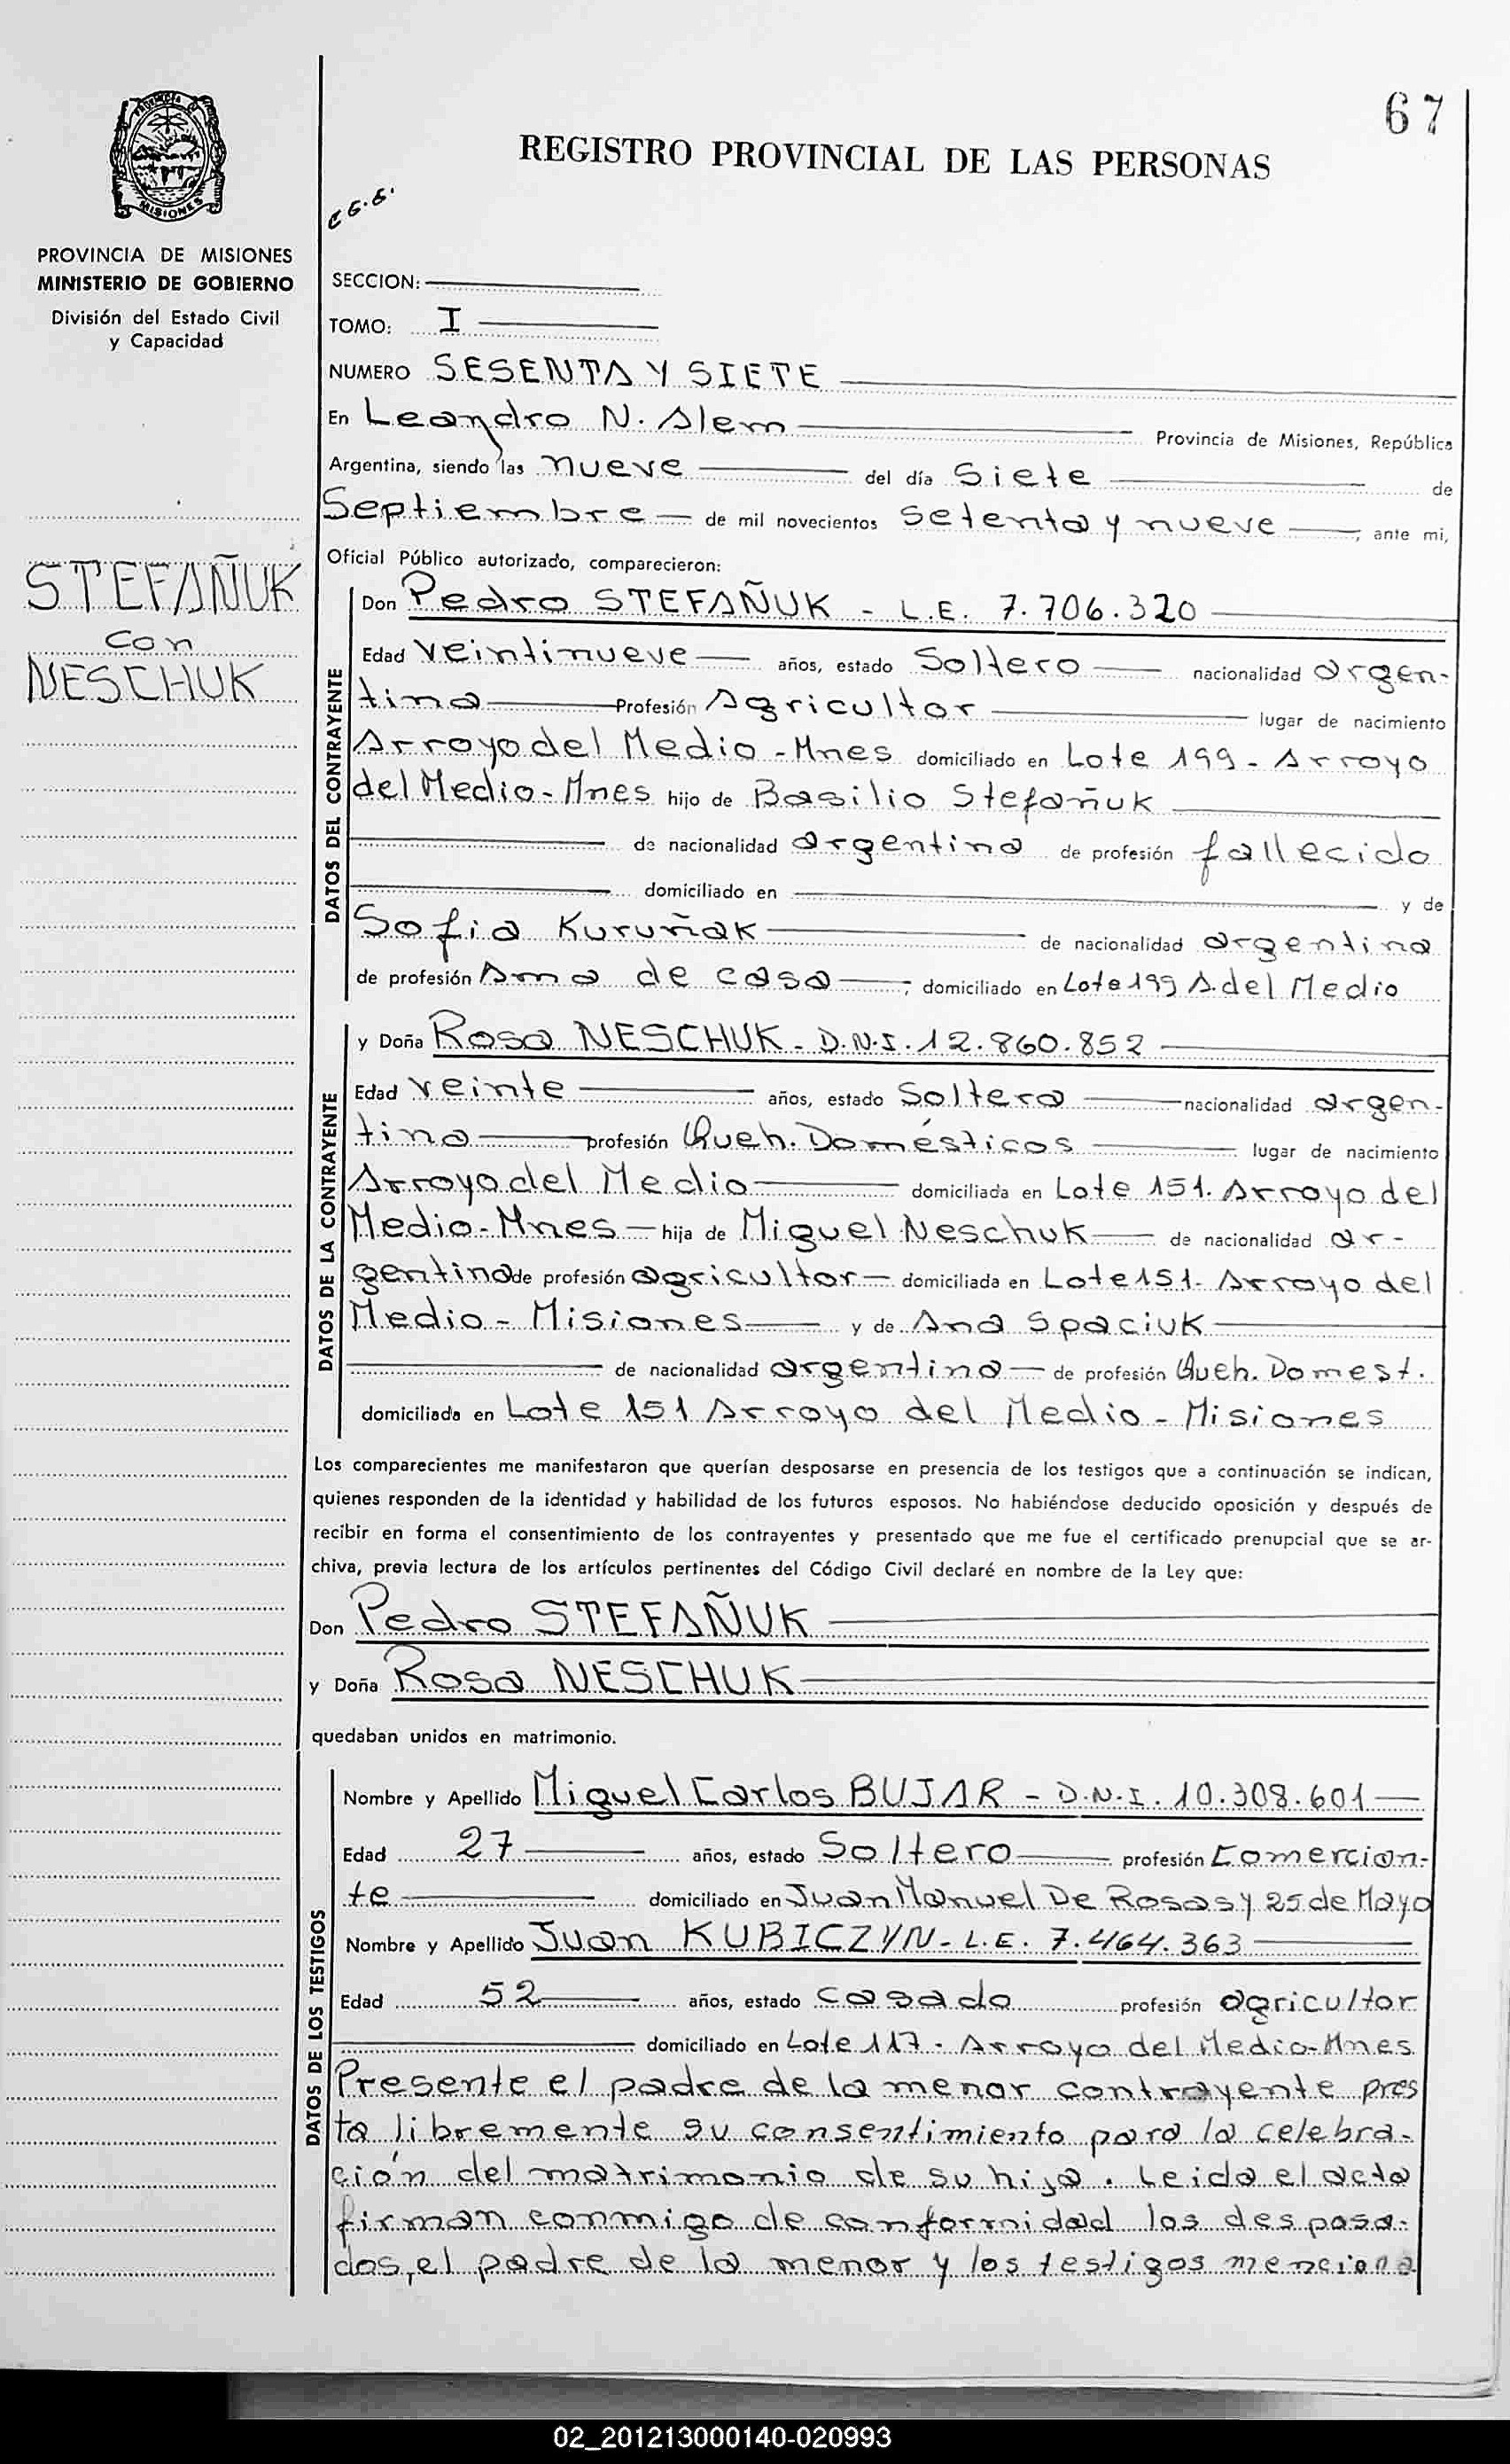 67
REGISTRO PROVINCIAL DE LAS PERSONAS
MISIONES
PROVINCIA DE MISIONES
MINISTERIO DE GOBIERNO
División del Estado Civil
y Capacidad
SECCION:
TOMO: I
NUMERO SESENTA Y SIETE
En Leandro N. Alem Provincia de Misiones, República
Argentina, siendo las nueve del día Siete de
Septiembre de mil novecientos setenta y nueve, ante mi,
Oficial Público autorizado, comparecieron:
STEFAÑUK
con
NESCHUK
DATOS DEL CONTRAYENTE
Don Pedro STEFAÑUK - L.E. 7.706.320
Edad veintinueve años, estado Soltero nacionalidad argen-
tina Profesión Agricultor lugar de nacimiento
Arroyo del Medio - Mnes domiciliado en Lote 199 - Arroyo
del Medio - Mnes hijo de Basilio Stefañuk
de nacionalidad argentina de profesión fallecido
domiciliado en y de
Sofia Kuruñak de nacionalidad argentina
de profesión Ama de casa, domiciliado en Lote 199 A. del Medio
DATOS DE LA CONTRAYENTE
y Doña Rosa NESCHUK - D.N.I. 12.860.852
Edad veinte años, estado Soltera nacionalidad argen-
tina profesión Queh. Domésticos lugar de nacimiento
Arroyo del Medio domiciliada en Lote 151. Arroyo del
Medio - Mnes hija de Miguel Neschuk de nacionalidad ar-
gentina de profesión agricultor domiciliada en Lote 151- Arroyo del
Medio - Misiones y de Ana Spaciuk
de nacionalidad argentina de profesión Queh. Domest.
domiciliada en Lote 151 Arroyo del Medio - Misiones
Los comparecientes me manifestaron que querían desposarse en presencia de los testigos que a continuación se indican,
quienes responden de la identidad y habilidad de los futuros esposos. No habiéndose deducido oposición y después de
recibir en forma el consentimiento de los contrayentes y presentado que me fue el certificado prenupcial que se ar-
chiva, previa lectura de los artículos pertinentes del Código Civil declaré en nombre de la Ley que:
Don Pedro STEFAÑUK
y Doña Rosa NESCHUK
quedaban unidos en matrimonio.
DATOS DE LOS TESTIGOS
Nombre y Apellido Miguel Carlos BUJAR - D.N.I. 10.308.601
Edad 27 años, estado Soltero profesión Comercian-
te domiciliado en Juan Manuel De Rosas y 25 de Mayo
Nombre y Apellido Juan KUBICZYN - L.E. 7.464.363
Edad 52 años, estado casado profesión agricultor
domiciliado en Lote 117 - Arroyo del Medio - Mnes
Presente el padre de la menor contrayente pres
ta libremente su consentimiento para la celebra-
ción del matrimonio de su hija. Leida el acta
firman conmigo de conformidad los desposa-
dos, el padre de la menor y los testigos menciona
02_201213000140-020993